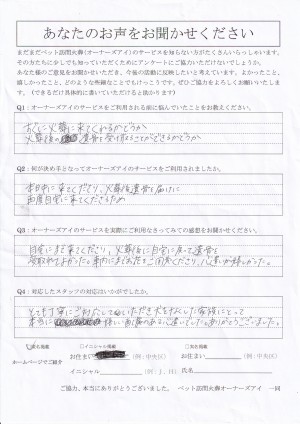 あなたのお声をお聞かせください
まだまだペット訪問火葬(オーナーズアイ)のサービスを知らない方がたくさんいらっしゃいます。
その方たちに少しでも知っていただくためにアンケートにご協力いただけないでしょうか。
あなた様のご意見をお聞かせいただき、今後の活動に反映したいと考えています。よかったこと、
嬉しかったこと、どのような些細なことでもけっこうです。ぜひご協力をよろしくお願いいたしま
す。(できるだけ具体的に書いていただけると助かります)
Q1:オーナーズアイのサービスをご利用される前に悩んでいたことをお教えください。
に火葬に来てくれるかどうか
火葬後の 遺骨を受け取ることができるかどうか
Q2:何が決め手となってオーナーズアイのサービスをご利用されましたか。
本日中に来てくださり、火葬後遺骨を届けに
再度自宅に来てくださるため
Q3:オーナーズアイのサービスを実際にご利用なさってみての感想をお聞かせください。
自宅にまで来てくださり、火葬後に自宅に戻って遺骨を
受取れてよかった。
Q4:対応したスタッフの対応はいかがでしたか。
とても丁寧に
本当に ありがとうございました。
実名掲載 イニシャル掲載 匿名掲載
ホームページでご紹介
お住まい (例:中央区) お住まい (例:中央区)
イニシャル (例:J.H) 氏名
ご協力、本当にありがとうございました。 ペット訪問火葬オーナーズアイ 一同